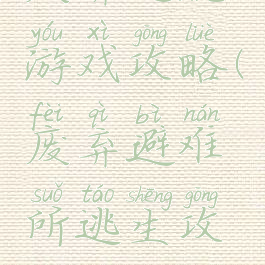 yóu xì gōng lüè
游戏攻略(
fèi qì bì nán
废弃避难
suǒ táo shēng gōng
所逃生攻